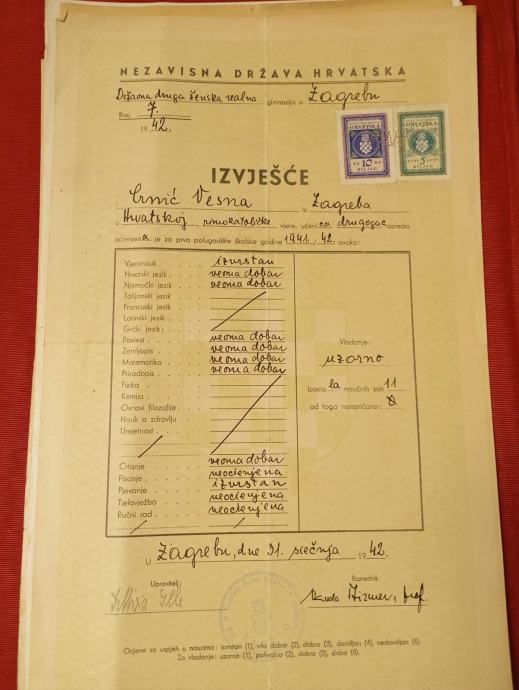 NEZAVISNA DRŽAVA HRVATSKA
Državna druga ženska realna gimnazija u Zagrebu
Broj 7.
1942.
HRVATSKA
10
KN KN
BILJEG
HRVATSKA
5
KUNA KUNA
BILJEG
IZVJEŠĆE
Crnić Vesna iz Zagreba
u Hrvatskoj, rimokatoličke vjere, učenica drugoga razreda
ocijenjena je za prvo polugodište školske godine 1941./42. ovako:
Vjeronauk izvrstan
Hrvatski jezik veoma dobar
Njemački jezik veoma dobar
Talijanski jezik
Francuski jezik
Latinski jezik
Grčki jezik
Poviest veoma dobar
Zemljopis veoma dobar
Matematika veoma dobar
Prirodopis veoma dobar
Fizika
Kemija
Osnovi filozofije
Nauk o zdravlju
Umjetnost
Čitanje veoma dobar
Pisanje neocienjena
Pjevanje izvrstan
Tjelovježba neocienjena
Ručni rad neocienjena
Vladanje:
uzorno
Izostala naučnih sati 11
od toga neispričano: 0
U Zagrebu, dne 31. siečnja 1942.
Upravitelj:
Razrednik:
prof.
Ocjene za uspjeh u naucima: izvrstan (1), vrlo dobar (2), dobar (3), dovoljan (4), nedovoljan (5).
Za vladanje: uzorno (1), pohvalno (2), dobro (3), slabo (5).